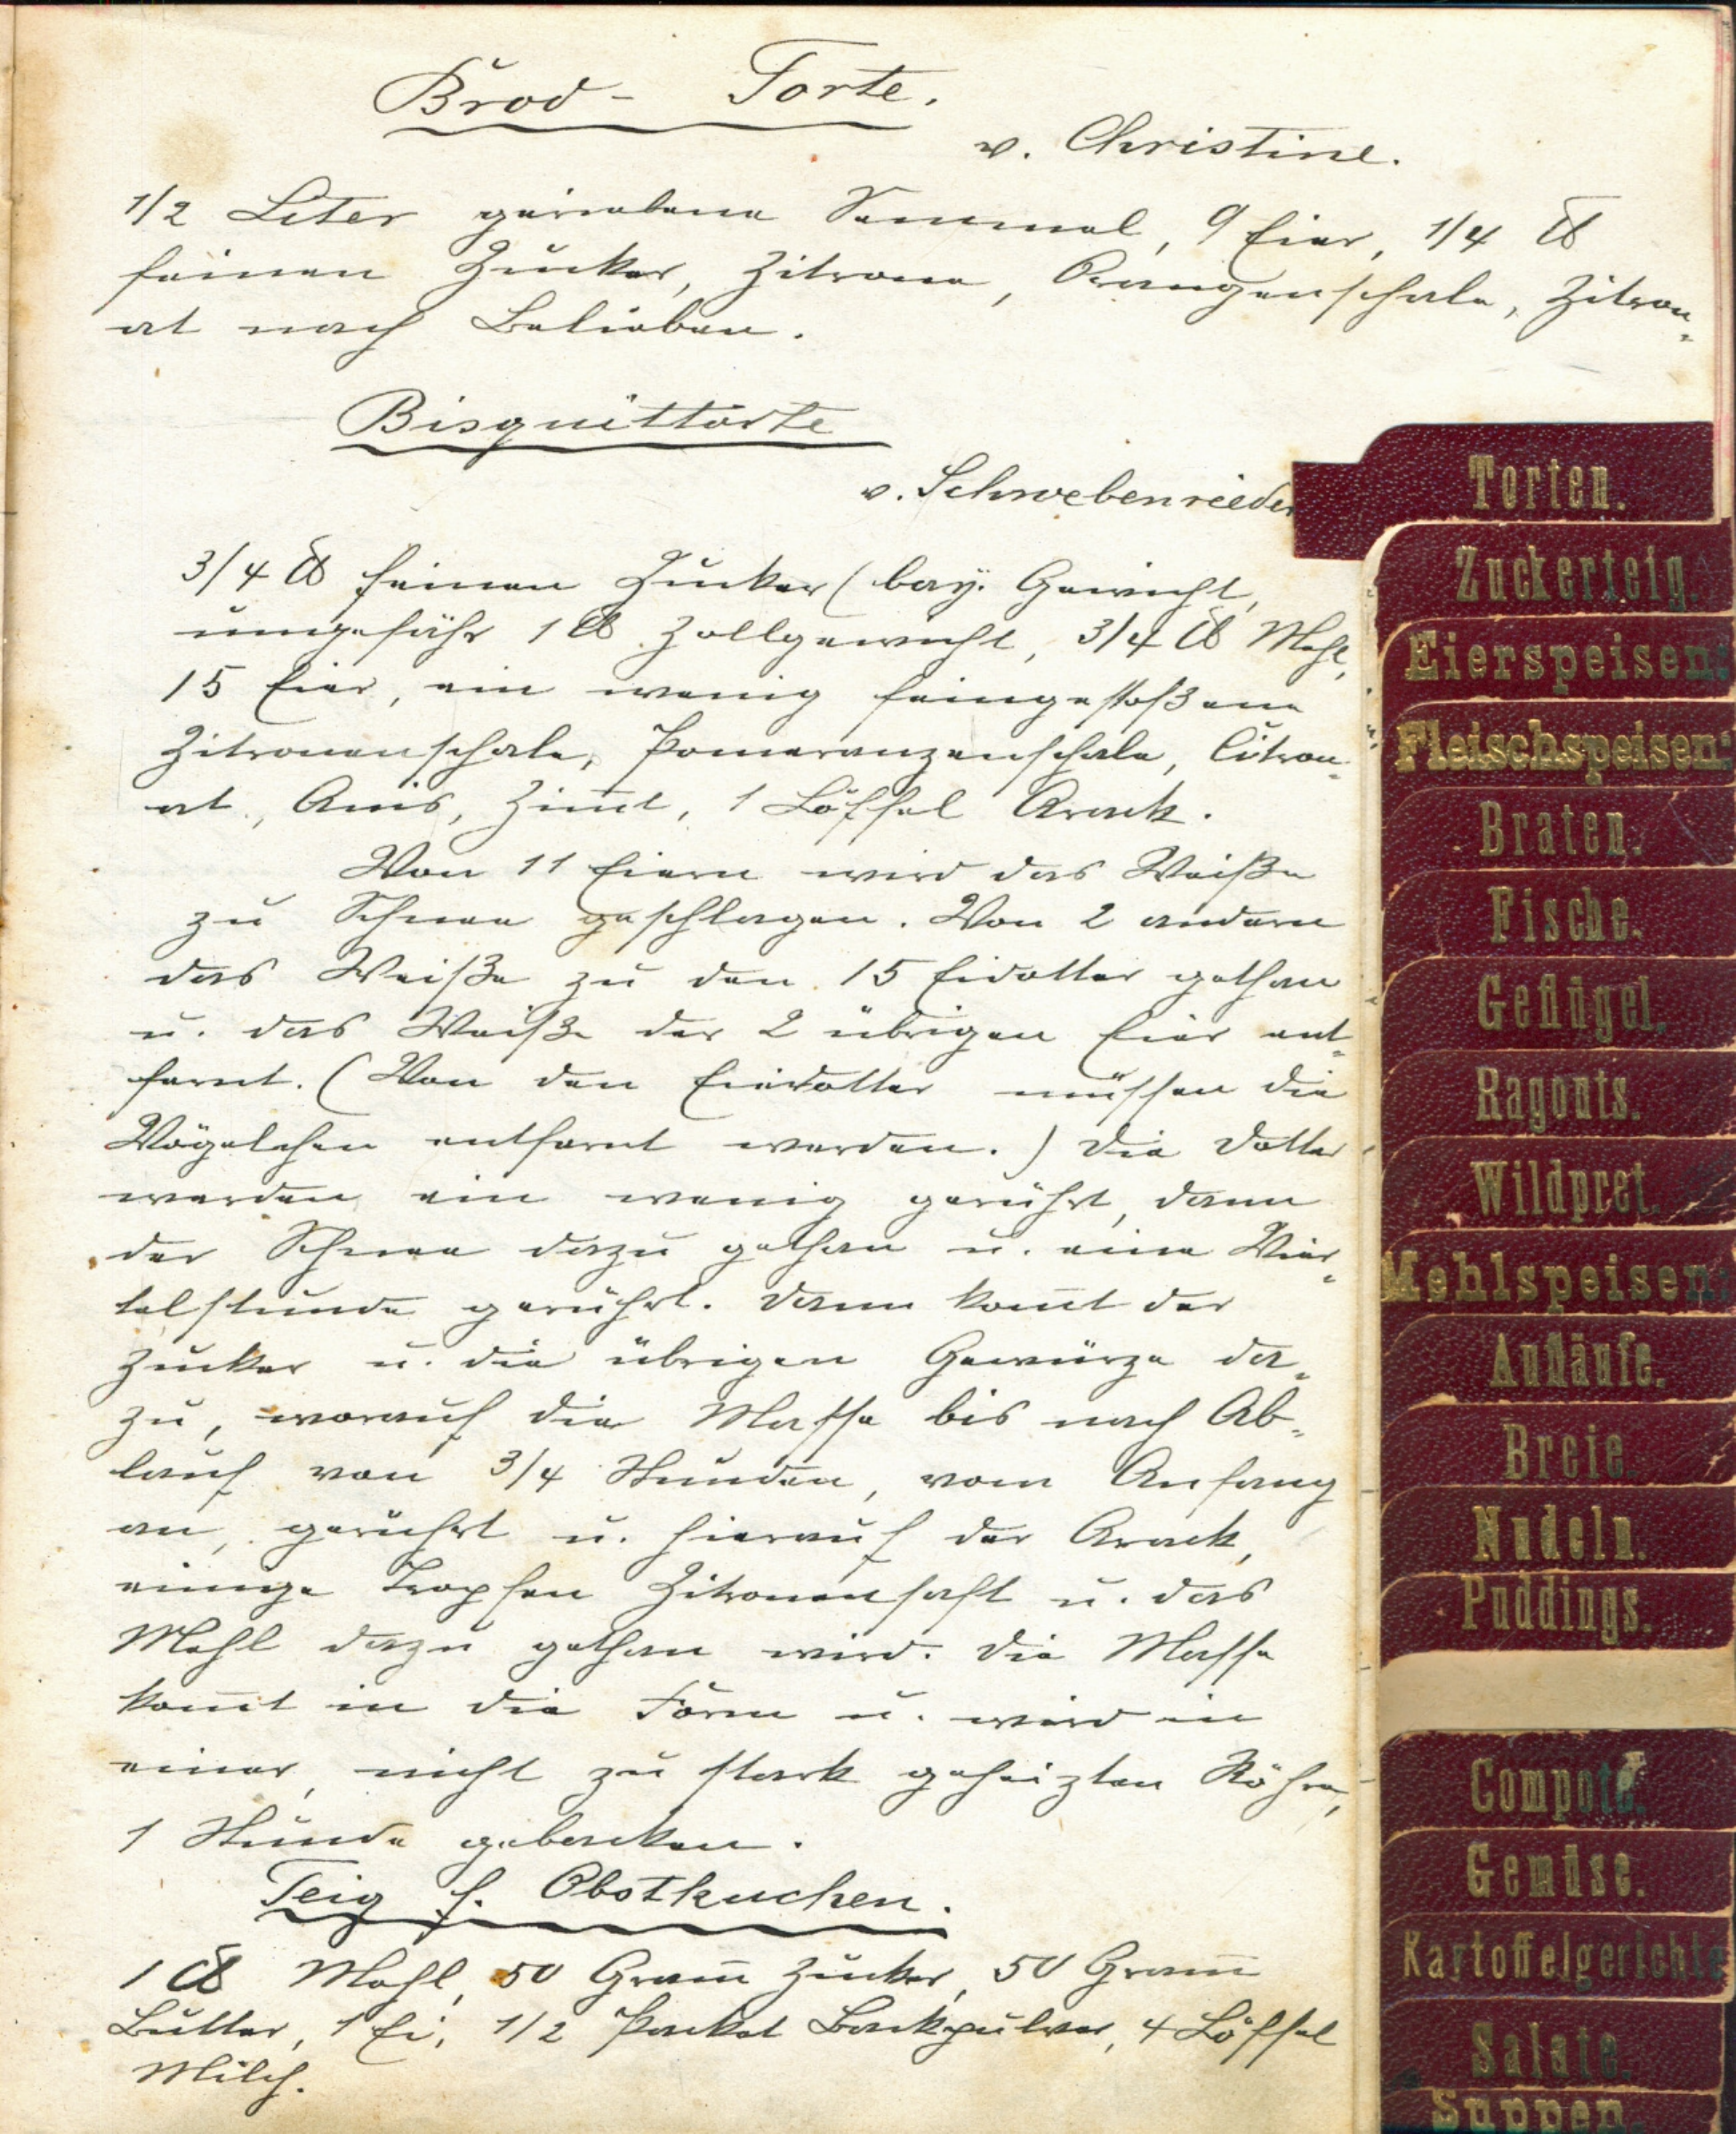 Brod- Torte.
v. Christine.
1/2 Liter geriebene Semmel, 9 Eier, 1/4 ℔
feinen Zucker, Zitrone, Orangenschale, Zitron-
at nach Belieben.
Bisquittorte
v. Schwebenrieder
3/4 ℔ feinen Zucker (bay. Gewicht,
ungefähr 1 ℔ Zollgewicht, 3/4 ℔ Mehl,
15 Eier, ein wenig feingestoßene
Zitronenschale, Pomeranzenschale, Citron-
at, Anis, Zim̅t, 1 Löffel Arack.
Von 11 Eiern wird das Weiße
zu Schnee geschlagen. Von 2 andern
das Weiße zu den 15 Eidotter gethan
u. das Weiße der 2 übrigen Eier ent-
fernt. (Von den Eierdotter müssen die
Vögelchen entfernt werden.) Die Dotter
werden ein wenig gerührt, dann
der Schnee dazu gethan u. eine Vier-
telstunde gerührt. Dann kom̅t der
Zucker u. die übrigen Gewürze da-
zu, worauf die Masse bis nach Ab-
lauf von 3/4 Stunden, vom Anfang
an, gerührt u. hierauf der Arack,
einige Tropfen Zitronensaft u. das
Mehl dazu gethan wird. Die Masse
kom̅t in die Form u. wird in
einer, nicht zu stark geheizten Röhre,
1 Stunde gebacken.
Teig f. Obstkuchen.
1 ℔ Mehl, 50 Gram̅ Zucker, 50 Gram̅
Butter, 1 Ei, 1/2 Packet Backpulver, 4 Löffel
Milch.
Torten.
Zuckerteig.
Eierspeisen.
Fleischspeisen.
Braten.
Fische.
Geflügel.
Ragouts.
Wildpret.
Mehlspeisen.
Aufläufe.
Breie.
Nudeln.
Puddings.
Compote.
Gemüse.
Kartoffelgerichte
Salate.
Suppen.